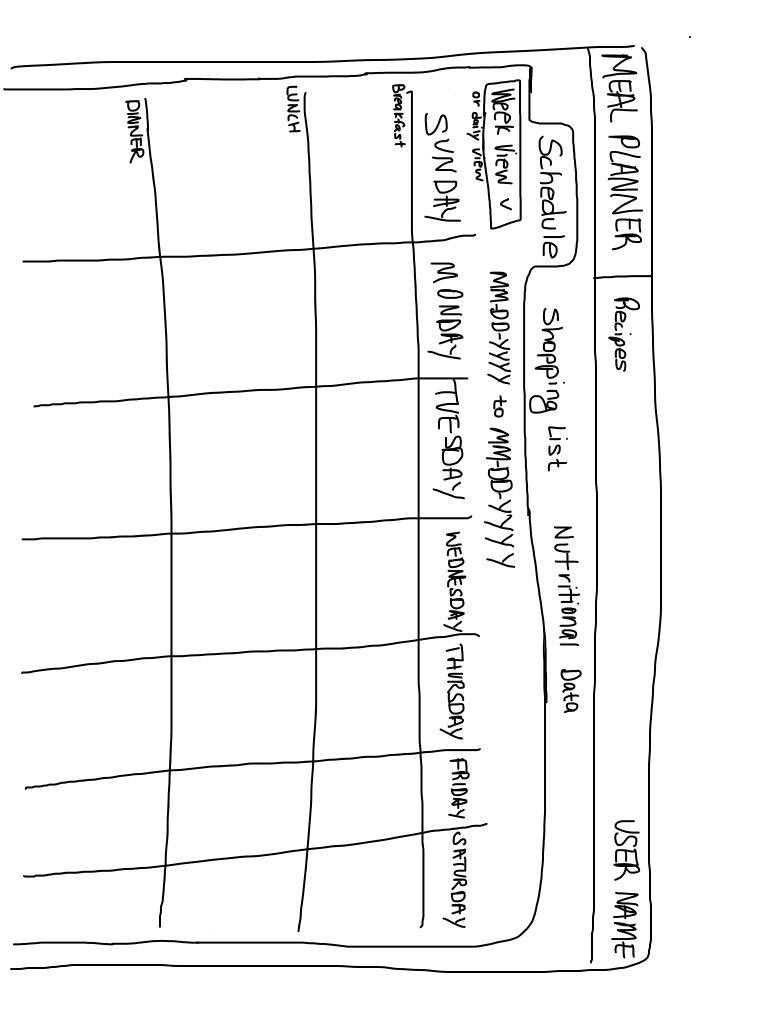 MEAL PLANNER Recipes USER NAME
Schedule Shopping List Nutritional Data
Week View v MM-DD-YYYY to MM-DD-YYYY
or daily view
SUNDAY MONDAY TUESDAY WEDNESDAY THURSDAY FRIDAY SATURDAY
Breakfast
LUNCH
DINNER